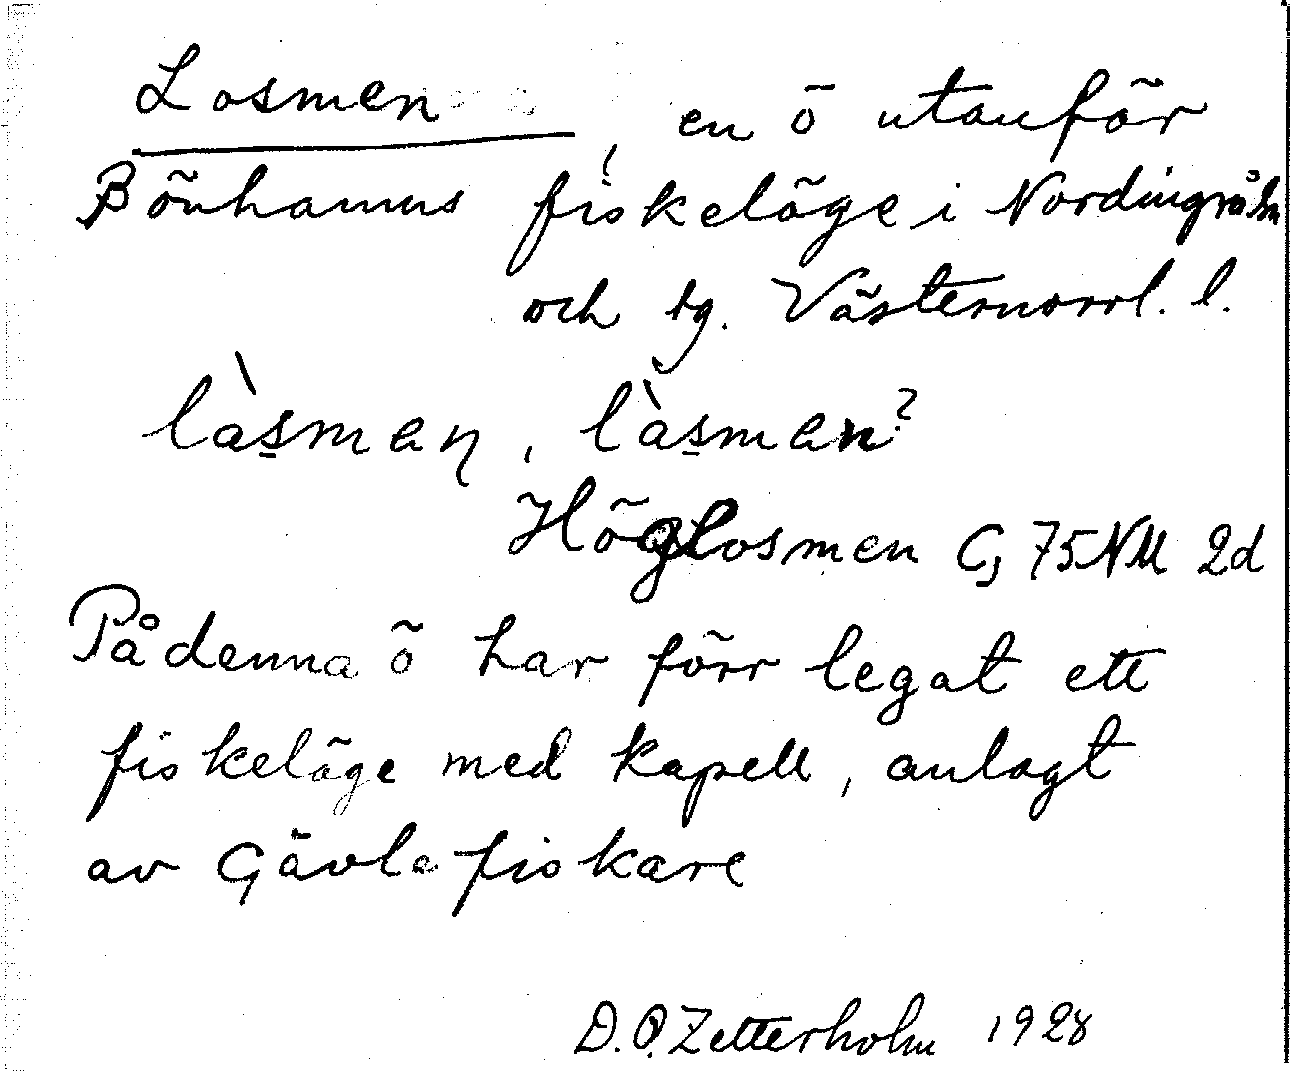 Losmen, en ö utanför
Bönhamns fiskeläge i Nordingrå sn
och tg. Västernorrl. l.
làsmaṇ, làsman?
Höglosmen G, 75NM 2d
På denna ö har förr legat ett
fiskeläge med kapell, anlagt
av Gävlefiskare
D.O. Zetterholm 1928